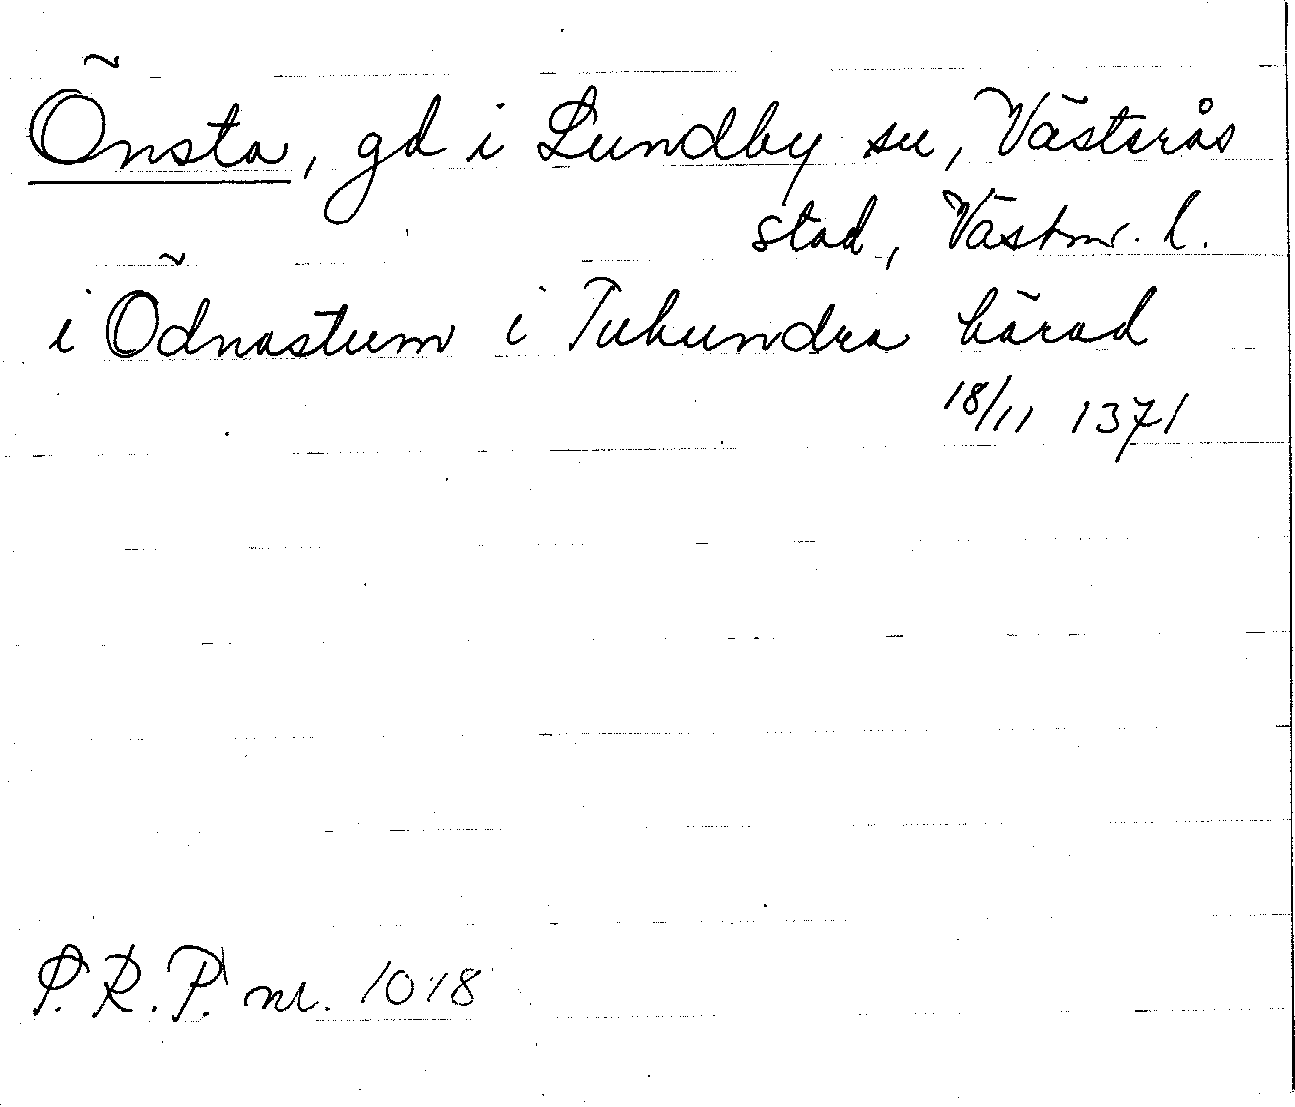 Önsta, gd i Lundby sn, Västerås
stad, Västm. l.
i Ödnastum i Tuhundra härad
18/11 1371
S.R.P. nr. 1018